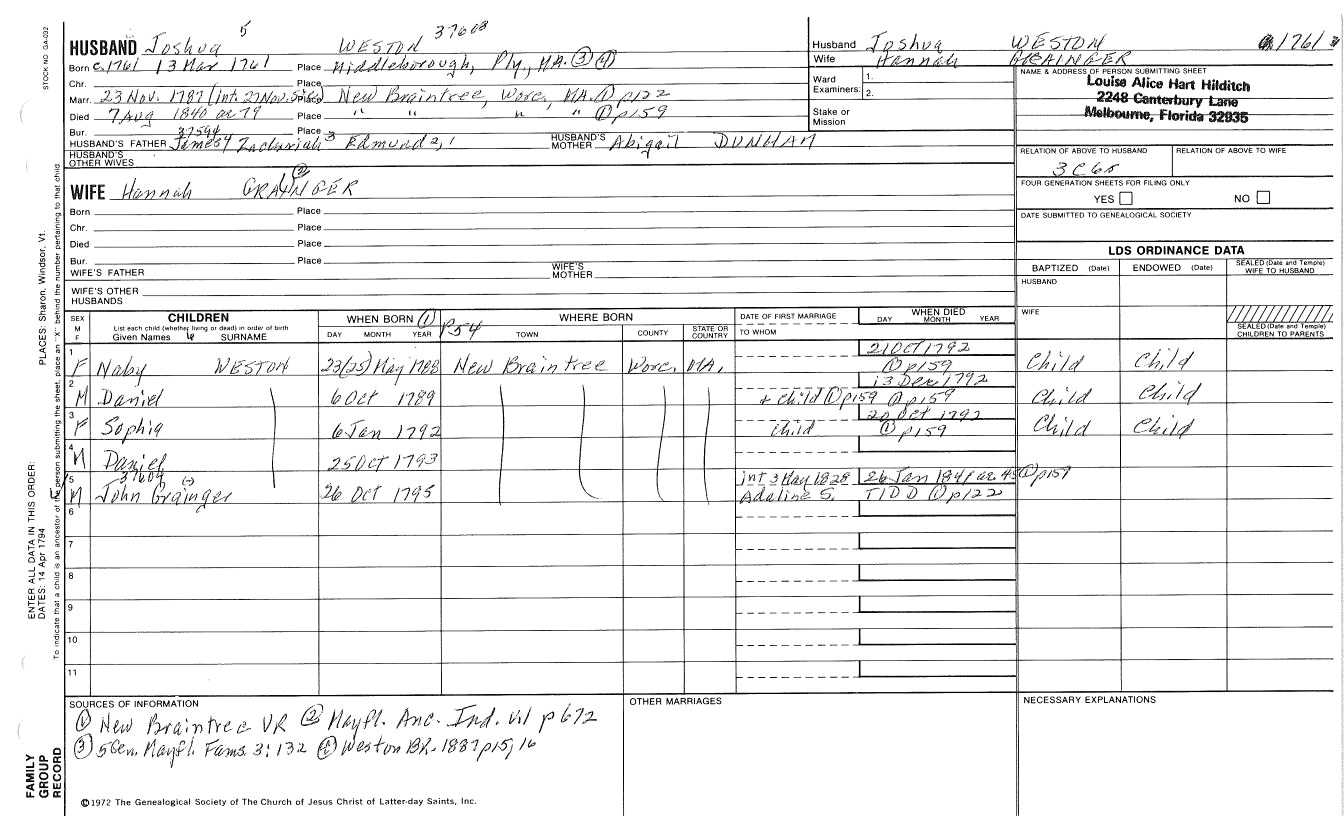 STOCK NO. GA-032
5 37608
HUSBAND Joshua WESTON
Born c.1761 13 Mar 1761 Place Middleborough, Ply., MA. ③ ④
Chr. Place
Marr. 23 Nov. 1787 (int. 27 Nov. Place New Braintree, Worc., MA. ① p122
Died 7 Aug 1840 ae 79 Place " " " " ① p159
Bur. 37594 Place
HUSBAND'S FATHER James 4 Zachariah 3 Edmund 2, 1 HUSBAND'S MOTHER Abigail DUNHAM
HUSBAND'S OTHER WIVES
WIFE Hannah GRAINGER ②
Born Place
Chr. Place
Died Place
Bur. Place
WIFE'S FATHER WIFE'S MOTHER
WIFE'S OTHER HUSBANDS
Husband Joshua WESTON 1761
Wife Hannah GRAINGER
Ward 1.
Examiners: 2.
Stake or Mission
NAME & ADDRESS OF PERSON SUBMITTING SHEET
Louise Alice Hart Hilditch
2248 Canterbury Lane
Melbourne, Florida 32935
RELATION OF ABOVE TO HUSBAND RELATION OF ABOVE TO WIFE
FOUR GENERATION SHEETS FOR FILING ONLY
YES NO
DATE SUBMITTED TO GENEALOGICAL SOCIETY
LDS ORDINANCE DATA
BAPTIZED (Date) ENDOWED (Date) SEALED (Date and Temple) WIFE TO HUSBAND
HUSBAND
WIFE
SEALED (Date and Temple) CHILDREN TO PARENTS
SEX M F CHILDREN WHEN BORN ① p54 WHERE BORN DATE OF FIRST MARRIAGE WHEN DIED
List each child (whether living or dead) in order of birth
Given Names SURNAME DAY MONTH YEAR TOWN COUNTY STATE OR COUNTRY TO WHOM DAY MONTH YEAR
1 21 Oct 1792
F Naby WESTON 23(25) May 1788 New Braintree Worc. MA. ① p159 Child Child
2 13 Dec 1792
M Daniel 6 Oct 1789 + child ① p159 ① p159 Child Child
3 20 Oct 1792
F Sophia 6 Jan 1792 child ① p159 Child Child
4
M Daniel 25 Oct 1793
5 37609 (-) int 3 May 1828 26 Jan 1841 ae. 45 ① p159
M John Grainger 26 Oct 1795 Adaline S. TIDD ① p122
6
7
8
9
10
11
SOURCES OF INFORMATION
① New Braintree VR ② Mayfl. Anc. Ind. v1 p 672
③ 5 Gen. Mayfl. Fams. 3:132 ④ Weston BR. 1887 p15, 16
OTHER MARRIAGES
NECESSARY EXPLANATIONS
©1972 The Genealogical Society of The Church of Jesus Christ of Latter-day Saints, Inc.
FAMILY GROUP RECORD
ENTER ALL DATA IN THIS ORDER:
DATES: 14 Apr 1794 PLACES: Sharon, Windsor, Vt.
To indicate that a child is an ancestor of the person submitting the sheet, place an "X" behind the number pertaining to that child.